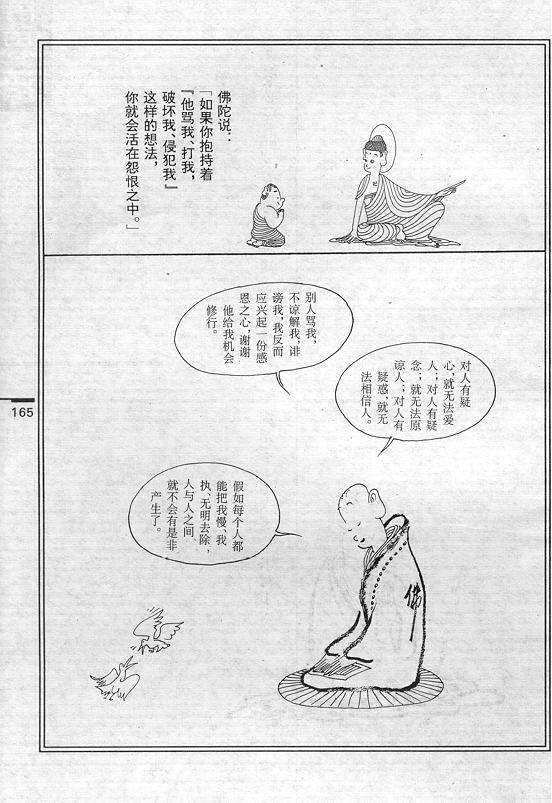 佛陀说：
「如果你抱持着
『他骂我、打我，
破坏我、侵犯我』
这样的想法，
你就会活在怨恨之中。」
别人骂我，
不谅解我，诽
谤我，我反而
应兴起一份感
恩之心，谢谢
他给我机会
修行。
对人有疑
心，就无法爱
人；对人有疑
念；就无法原
谅人；对人有
疑惑，就无
法相信人。
假如每个人都
能把我慢、我
执、无明去除，
人与人之间，
就不会有是非
产生了。
佛
165